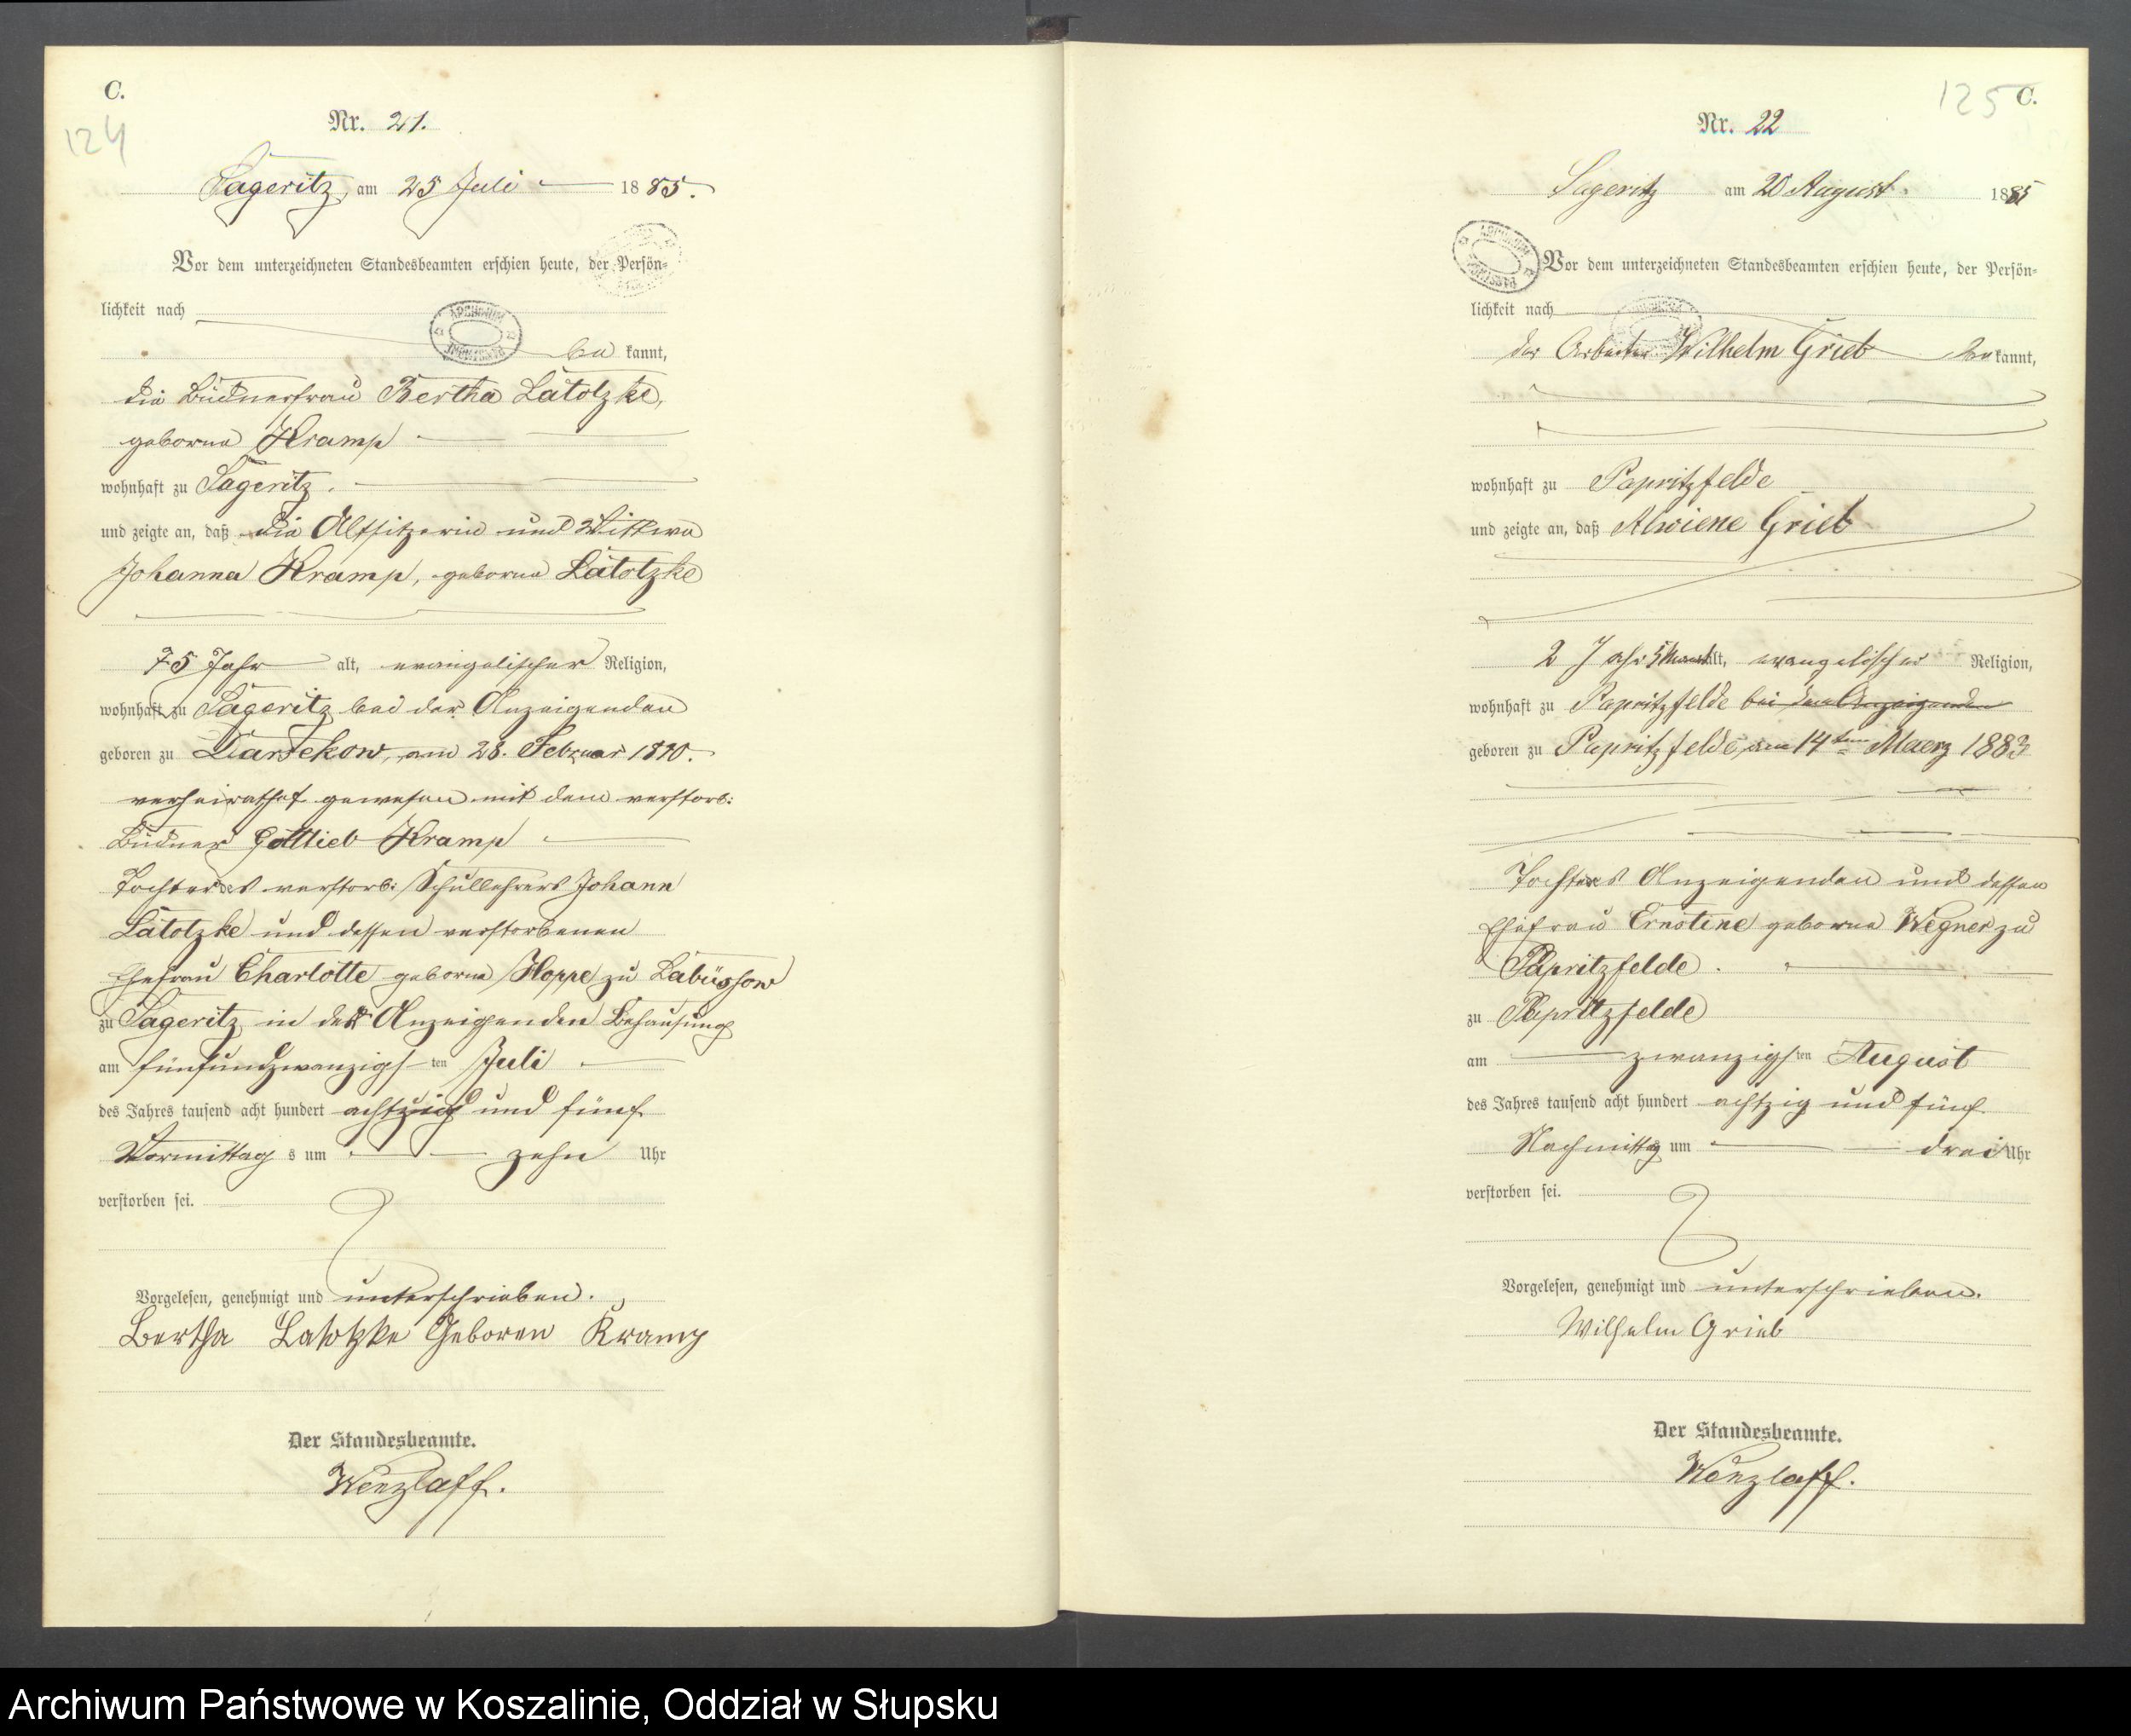 C.
124
Nr. 21.
Sageritz, am 25 Juli 1885.
Vor dem unterzeichneten Standesbeamten erschien heute, der Persön-
lichkeit nach
be kannt,
die Büdnerfrau Bertha Latotzke,
geborne Kramp
wohnhaft zu Sageritz.
und zeigte an, daß die Altsitzerin und Wittwe
Johanna Kramp, geborne Latotzke
75 Jahr alt, evangelischer Religion,
wohnhaft zu Sageritz bei der Anzeigenden
geboren zu Darsekow, am 28. Februar 1810.
verheirathet gewesen mit dem verstorb:
Büdner Gottlieb Kramp
Tochter des verstorb: Schullehrers Johann
Latotzke und dessen verstorbenen
Ehefrau Charlotte geborne Hoppe zu Labüssow
zu Sageritz in der Anzeigenden Behausung
am fünfundzwanzigsten Juli
des Jahres tausend acht hundert achtzig und fünf
Vormittag s um zehn Uhr
verstorben sei.
Vorgelesen, genehmigt und unterschrieben.
Bertha Latotzke Geboren Kramp
Der Standesbeamte.
Wenzlaff.
125 C.
Nr. 22
Sageritz am 20 August 1885
Vor dem unterzeichneten Standesbeamten erschien heute, der Persön-
lichkeit nach
der Arbeiter Wilhelm Grieb be kannt,
wohnhaft zu Papritzfelde
und zeigte an, daß Alwiene Grieb
2 Jahr 5 Monat alt, evangelischer Religion,
wohnhaft zu Papritzfelde bei dem Anzeigenden
geboren zu Papritzfelde, am 14ten Maerz 1883
Tochter des Anzeigenden und dessen
Ehefrau Ernstine geborne Wegner zu
Papritzfelde.
zu Papritzfelde
am zwanzigsten August
des Jahres tausend acht hundert achtzig und fünf
Nachmittags um drei Uhr
verstorben sei.
Vorgelesen, genehmigt und unterschrieben.
Wilhelm Grieb
Der Standesbeamte.
Wenzlaff.
Archiwum Państwowe w Koszalinie, Oddział w Słupsku